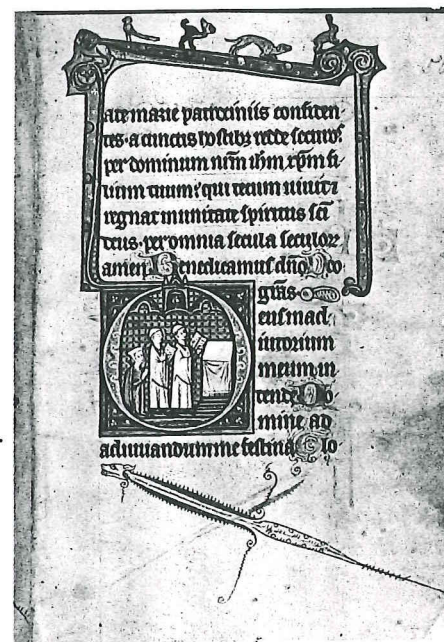 ate marie patrociniis confiden-
tes. a cunctis hostibꝫ redde securos
per dominum nr̄m ihm̄. xp̄m fi-
lium tuum: qui tecum uiuit ⁊
regnat in unitate spiritus sc̄i
deus. per omnia secula seculor̄
amen. Benedicamus dn̄o Deo
gr̄as
eus in ad
iutorium
meum in
tende Do-
mine ad
adiuuandum me festina Glo